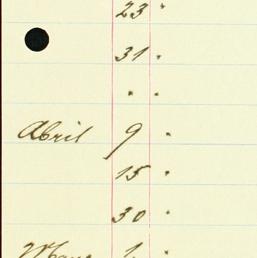 23 "
31 "
" "
Abril 9 "
15 "
30 "